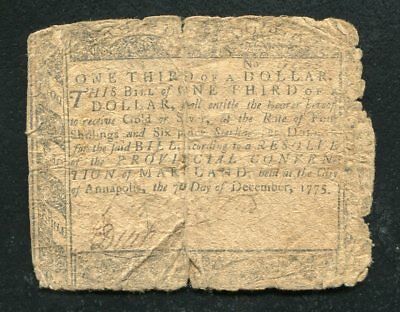 No
ONE THIRD OF A DOLLAR.
THIS BILL of ONE THIRD OF A
DOLLAR, shall entitle the bearer hereof
to receive Gold or Silver, at the Rate of Four
Shillings and Six-pence Sterling per Dollar
for the said BILL, according to a RESOLVE
of the PROVINCIAL CONVEN-
TION of MARYLAND, held at the City
of Annapolis, the 7th Day of December, 1775.